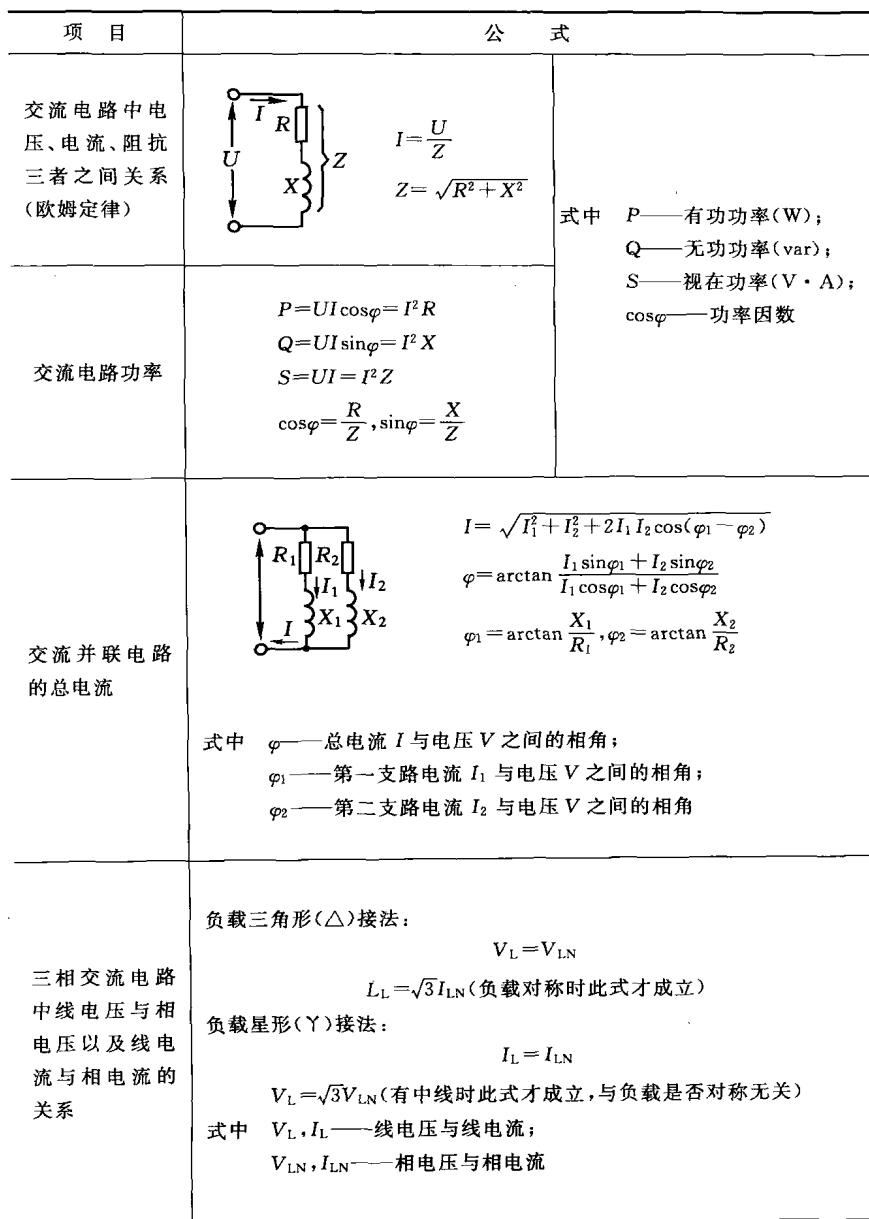 项 目 公 式
交流电路中电
压、电流、阻抗
三者之间关系
(欧姆定律)
I R
U X Z
I=U/Z
Z=√(R²+X²)
式中 P——有功功率(W);
Q——无功功率(var);
S——视在功率(V·A);
cosφ——功率因数
交流电路功率
P=UIcosφ=I²R
Q=UIsinφ=I²X
S=UI=I²Z
cosφ=R/Z,sinφ=X/Z
交流并联电路
的总电流
R₁ R₂
I₁ I₂
X₁ X₂
I
I=√(I₁²+I₂²+2I₁I₂cos(φ₁-φ₂))
φ=arctan (I₁sinφ₁+I₂sinφ₂)/(I₁cosφ₁+I₂cosφ₂)
φ₁=arctan X₁/R₁,φ₂=arctan X₂/R₂
式中 φ——总电流 I 与电压 V 之间的相角;
φ₁——第一支路电流 I₁ 与电压 V 之间的相角;
φ₂——第二支路电流 I₂ 与电压 V 之间的相角
三相交流电路
中线电压与相
电压以及线电
流与相电流的
关系
负载三角形(△)接法:
V_L=V_LN
L_L=√3I_LN(负载对称时此式才成立)
负载星形(Y)接法:
I_L=I_LN
V_L=√3V_LN(有中线时此式才成立,与负载是否对称无关)
式中 V_L,I_L——线电压与线电流;
V_LN,I_LN——相电压与相电流